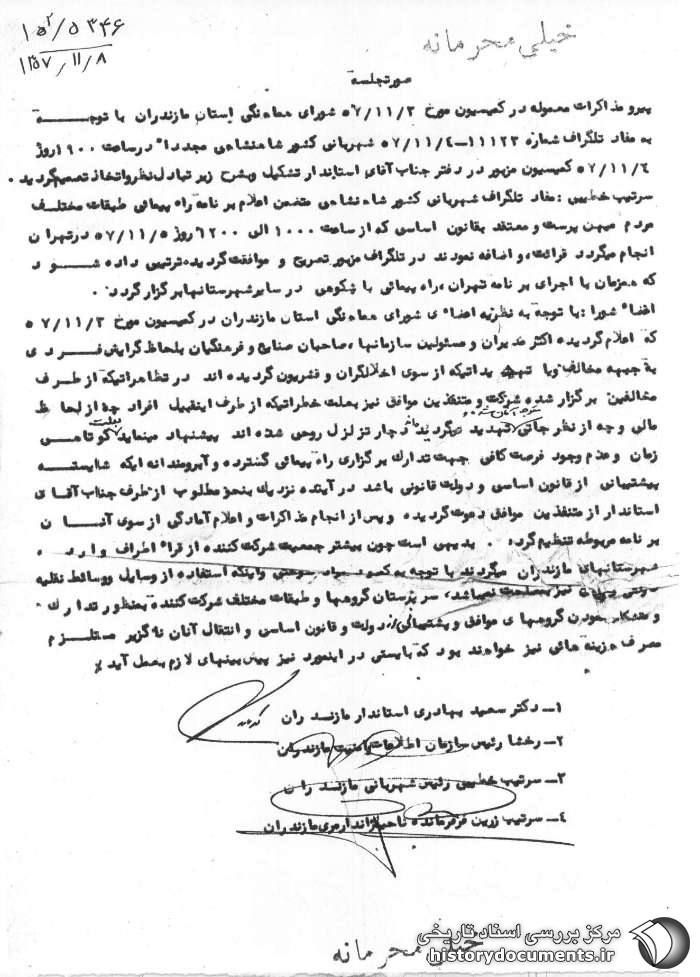 ۱۵۲/۵۳۴۶
۱۳۵۷/۱۱/۸
خیلی محرمانه
صورتجلسه
پیرو مذاکرات معموله در کمیسیون مورخ ۵۷/۱۱/۳ شورای هماهنگی استان مازندران با توجـــه
به مفاد تلگراف شماره ۱۱۱۲۳–۵۷/۱۱/۴ شهربانی کشور شاهنشاهی مجدداً در ساعت ۱۹۰۰ روز
۵۷/۱۱/۴ کمیسیون مزبور در دفتر جناب آقای استاندار تشکیل و بشرح زیر تبادل نظر و اتخاذ تصمیم گردید .
سرتیپ خطیبی : مفاد تلگراف شهربانی کشور شاهنشاهی متضمن اعلام برنامه راه پیمائی طبقات مختلف
مردم میهن پرست و معتقد بقانون اساسی که از ساعت ۱۰۰۰ الی ۱۲۰۰ روز ۵۷/۱۱/۵ در تهران
انجام میگردد قرائت ، و اضافه نمودند در تلگراف مزبور تصریح و موافقت گردیده ترتیبی داده شــود
که همزمان با اجرای برنامه تهران ، راه پیمائی با شکوهی در سایر شهرستانها برگزار گردد .
اعضاء شورا : با توجه به نظریه اعضای شورای هماهنگی استان مازندران در کمیسیون مورخ ۵۷/۱۱/۳
که اعلام گردیده اکثر مدیران و مسئولین سازمانها ، صاحبان صنایع و فرهنگیان بلحاظ گرایش فردی
به جبهه مخالف و یا تهدیداتیکه از سوی اخلالگران و قشریون گردیده اند در تظاهراتیکه از طرف
مخالفین برگزار شده شرکت و متنفذین موافق نیز بعلت خطراتیکه از طرف اینقبیل افراد چه از لحاظ
مالی و چه از نظر جانی متوجه آنان شده تهدید میگردید دچار تزلزل روحی شده اند پیشنهاد مینماید بعلت کوتاهی
زمان و عدم وجود فرصت کافی جهت تدارک برگزاری راه پیمائی گسترده و آبرومندانه ایکه شایسته
پیشتیبانی از قانون اساسی و دولت قانونی باشد در آینده نزدیک بنحو مطلوب از طرف جناب آقای
استاندار از متنفذین موافق دعوت گردیده و پس از انجام مذاکرات و اعلام آمادگی از سوی آنان
برنامه مربوطه تنظیم گردد . بدیهی است چون بیشتر جمعیت شرکت کننده از قراء اطراف وارد
شهرستانهای مازندران میگردند با توجه به کمبود مواد سوختی و اینکه استفاده از وسایل و وسائط نقلیه
دولتی نیز بمصلحت نمیباشد ، سرپرستان گروهها و طبقات مختلف شرکت کننده بمنظور تدارک
و متشکل نمودن گروههای موافق و پشتیبانی از دولت و قانون اساسی و انتقال آنان ناگزیر مستلزم
مصرف هزینه هائی نیز خواهند بود که بایستی در اینمورد نیز پیش بینیهای لازم بعمل آید
۱– دکتر سعید بهادری استاندار مازندران
۲– رخشا رئیس سازمان اطلاعات و امنیت مازندران
۳– سرتیپ خطیبی رئیس شهربانی مازندران
۴– سرتیپ زرین فر فرمانده ناحیه ژاندارمری مازندران
خیلی محرمانه
مرکز بررسی اسناد تاریخی
historydocuments.ir